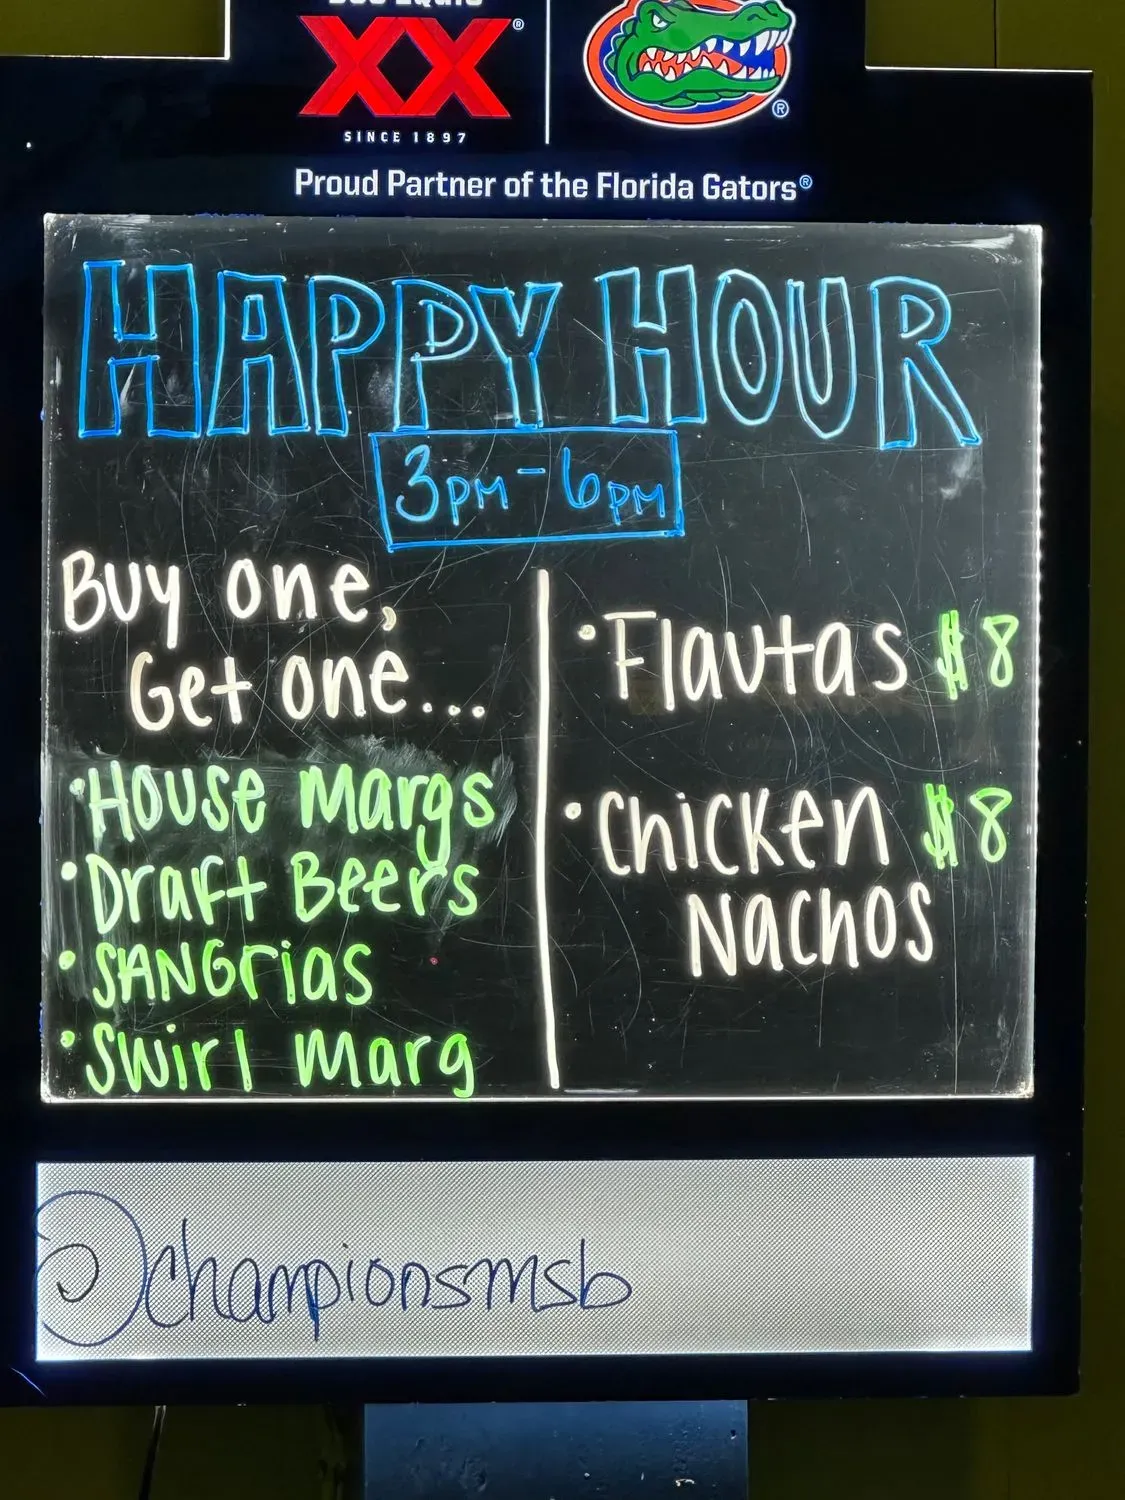 XX®
SINCE 1897
®
Proud Partner of the Florida Gators®
HAPPY HOUR
3PM - 6PM
Buy one,
Get one...
•House Margs
•Draft Beers
•SANGrias
•Swirl Marg
•Flautas $8
•Chicken $8
Nachos
@championsmsb